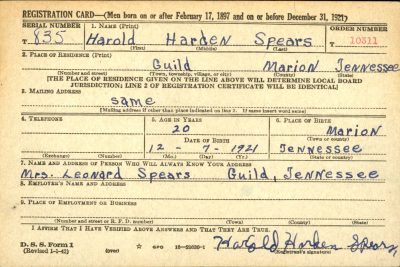 REGISTRATION CARD—(Men born on or after February 17, 1897 and on or before December 31, 1921)
SERIAL NUMBER 1. NAME (Print) ORDER NUMBER
T 835 Harold Harden Spears 10311
(First) (Middle) (Last)
2. PLACE OF RESIDENCE (Print)
Guild Marion Tennessee
(Number and street) (Town, township, village, or city) (County) (State)
[THE PLACE OF RESIDENCE GIVEN ON THE LINE ABOVE WILL DETERMINE LOCAL BOARD
JURISDICTION; LINE 2 OF REGISTRATION CERTIFICATE WILL BE IDENTICAL]
3. MAILING ADDRESS
same
[Mailing address if other than place indicated on line 2. If same insert word same]
4. TELEPHONE 5. AGE IN YEARS 6. PLACE OF BIRTH
20 Marion
DATE OF BIRTH (Town or county)
12 - 7 - 1921 Tennessee
(Exchange) (Number) (Mo.) (Day) (Yr.) (State or country)
7. NAME AND ADDRESS OF PERSON WHO WILL ALWAYS KNOW YOUR ADDRESS
Mrs. Leonard Spears Guild, Tennessee
8. EMPLOYER'S NAME AND ADDRESS
9. PLACE OF EMPLOYMENT OR BUSINESS
(Number and street or R. F. D. number) (Town) (County) (State)
I AFFIRM THAT I HAVE VERIFIED ABOVE ANSWERS AND THAT THEY ARE TRUE.
D. S. S. Form 1
(Revised 1-1-42) GPO Harold Harden Spears
(Registrant's signature)